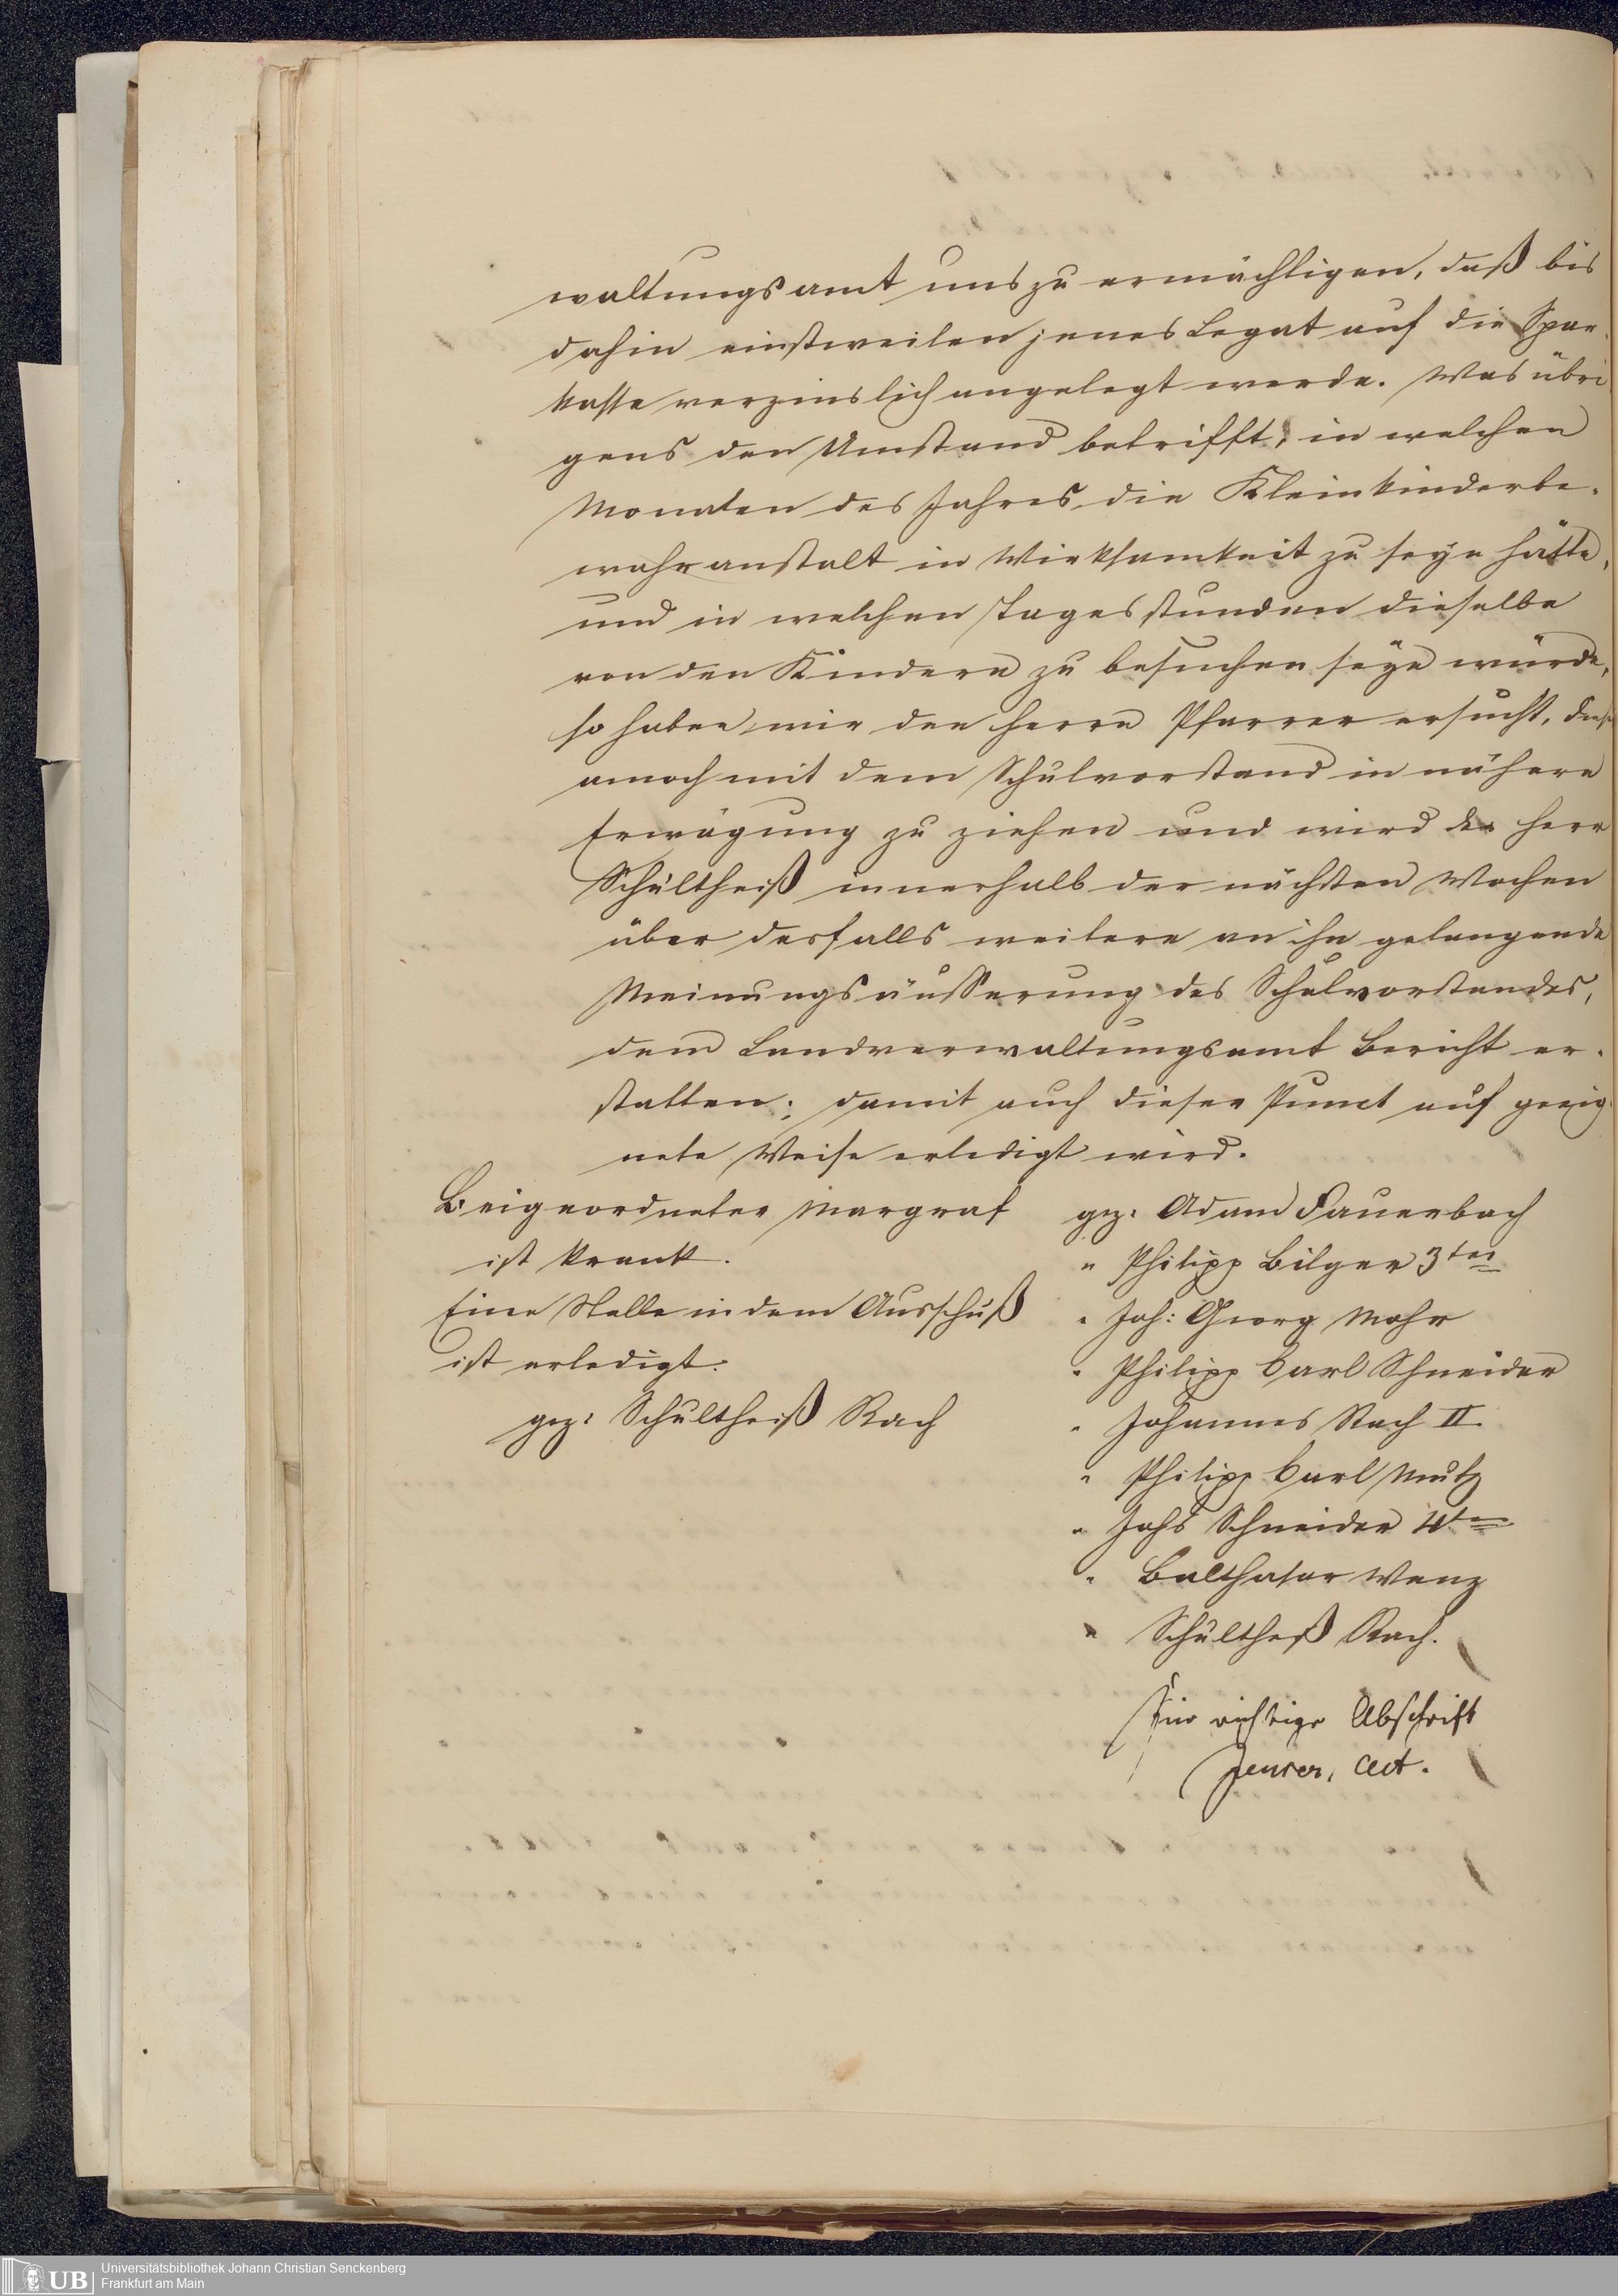 waltungsamt uns zu ermächtigen, daß bis
dahin einstweilen jenes Legat auf die Spar-
kasse verzinslich angelegt werde. Was übri
gens den Umstand betrifft, in welchen
Monaten des Jahres, die Kleinkinderbe-
wahranstalt in Wirksamkeit zu seyn hätte,
und in welchen Tagesstunden dieselbe
von den Kindern zu besuchen seyn würde,
so haben wir den Herrn Pfarrer ersucht, dies
annoch mit dem Schulvorstand in nähere
Erwägung zu ziehen und wird der Herr
Schultheiß innerhalb der nächsten Wochen
über desfalls weitere an ihn gelangende
Meinungsäusserung des Schulvorstandes,
dem Landverwaltungsamt Bericht er-
statten; damit auch dieser Punct auf geeig
nete Weise erledigt wird.
Beigeordneter Margraf
ist krank.
Eine Stelle in dem Ausschuß
ist erledigt.
gez: Schultheiß Rach
gez: Adam Fauerbach
" Philipp Bilger 3ter
" Joh: Georg Mohr
" Philipp Carl Schneider
" Johannes Rach II.
" Philipp Carl Mutz
" Johs Schneider 4ter
" Balthasar Wenz
" Schultheß Rach.
Für richtige Abschrift
Act.
Universitätsbibliothek Johann Christian Senckenberg
Frankfurt am Main
UB